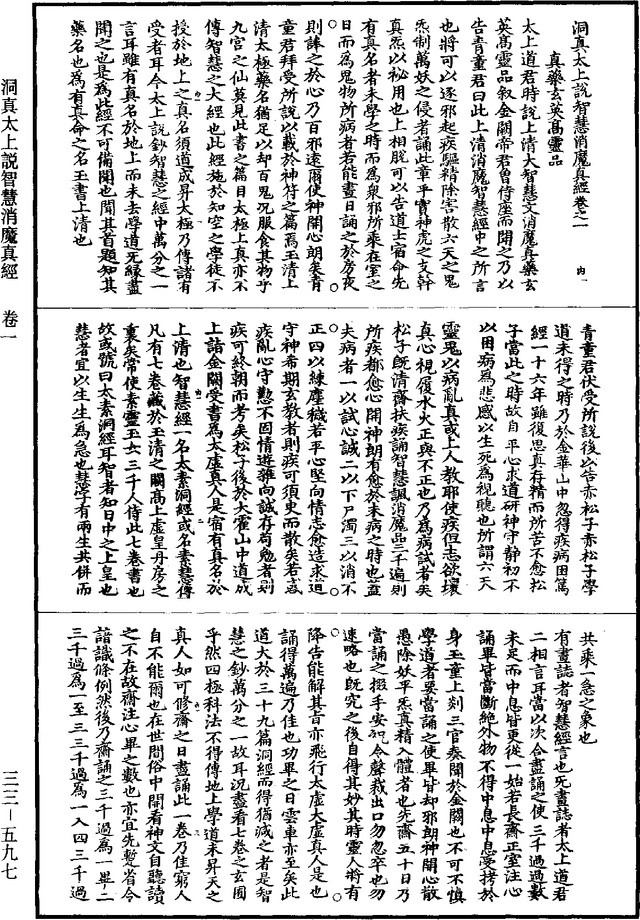 洞真太上說智慧消魔真經卷之一
內一
真藥玄英高靈品
太上道君時說上清大智慧文消魔真藥玄
英高靈品叙金闕帝君曾侍座而聞之乃以
告青童君曰此上清消魔智慧經中之所言
也將可以逐邪起疾驅精除害散六天之鬼
炁制萬妖之侵者誦此章乎寶神虎之文幹
真炁以祕用也上相脫可以告道士宿命先
有真名者未學之時而為衆邪所乘在室之
日而為鬼物所病者若能晝日誦之於房夜
則誅之於心乃百邪遠爾使神開心朗矣青
童君拜受所說以載於神符之篇焉玉清上
清太極藥名猶足以却百鬼况服食其物乎
九宮之仙莫見此書之篇目太極上真亦不
傳智慧之大經也此經施於知空之學徒不
授於地上之真名須道成昇太極乃傳諸有
受者耳今太上說鈔智慧之經中萬分之一
言耳雖有真名於地上而未去學道死緣盡
聞之也是為此經不可備聞也聞其首題知其
藥名也為有真命之名玉書上清也
青童君伏受所說後以告赤松子赤松子學
道未得之時乃於金華山中忽得疾病困篤
經一十六年雖復思真存精而所苦不愈松
子當此之時故自平心求道研神守靜初不
以困病為悲感以生死為視聽也所謂六天
靈鬼以病亂真或上人教耶使疾但志欲壞
真心視履水火正與不正也乃為病試者矣
松子既清齋扶疾誦智慧諷消魔品三千遍則
所疾都愈心開神朗有愈於未病之時也蓋
夫病者一以試心誠二以下尸濁三以消不
正四以練塵穢若平心堅向情志愈造求迴
疾亂心守懃不固情遊雜向誠存苟勉者則
守神希期玄教者則疾可須臾而散矣若惑
疾可終朝而考矣松子後於大霍山中道成
上詣金闕受書為太虛真人是宿有真名於
上清也智慧經一名太素洞經或名素慧傳
凡有七卷藏於玉清之闕高上虛皇丹房之
裏矣常使素靈玉女三千人侍此七卷書也
故或號曰太素洞經耳智者知日中之上皇也
慧者宜以生生為急也慧字有兩生共併而
共乘一急之象也
有晝誌者智慧經言也死晝誌者太上道君
二相言耳當以次合盡誦之使三千過過數
未足而中息皆更從一始若長齋正室注心
誦畢皆當斷絶外物不得中息中息受拷於
身玉童上刻三官奏聞於金闕也不可不慎
學道者要當誦之使畢皆却邪朗神開心散
愚除妖平炁真精入體者也先齋五十日乃
當誦之掇手安如令聲裁出口勿忽卒也勿
速略也既究之後自得其妙其時靈人將有
降告能解其言亦飛行太虛大虛真人是也
誦得萬遍乃佳也功畢之日雲車亦至矣此
道大於三十九篇洞經而得猶減之者是智
慧之鈔萬分之一故耳況盡看七卷之玄圖
乎然四極科法不得傳地上學道未昇天之
真人如可修齋之日盡誦此一卷乃佳窮人
自不能爾也在世間俗中開看神文自聽讀
之不在故齋注心畢之數也亦宜先暫省令
諳識條例然後乃齋誦之三千過為一畢二
三千過為一至三三千過為一入四三千過
洞真太上說智慧消魔真經　卷一
三三—五九七